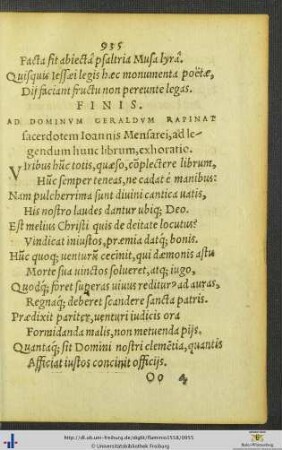 935
Facta sit abiectâ psaltria Musa lyrâ.
Quisquis Iessæi legis hæc monumenta poëtæ,
Dij faciant fructu non pereunte legas.
FINIS.
AD DOMINVM GERALDVM RAPINAT
sacerdotem Ioannis Mensarei, ad le-
gendum hunc librum, exhoratio.
VIribus hûc totis, quæso, cõplectere librum,
Hûc semper teneas, ne cadat è manibus:
Nam pulcherrima sunt diuini cantica uatis,
His nostro laudes dantur ubiq; Deo.
Est melius Christi quis de deitate locutus?
Vindicat iniustos, præmia datq; bonis.
Hûc quoq; uenturũ cecinit, qui dæmonis astu
Morte sua uinctos solueret, atq; iugo,
Quodq; foret superas uiuus rediturꝰ ad auras,
Regnaq; deberet scandere sancta patris.
Prædixit pariter, uenturi iudicis ora
Formidanda malis, non metuenda pijs.
Quantaq; sit Domini nostri clemẽtia, quantis
Afficiat iustos concinit officijs.
Oo 4
http://dl.ub.uni-freiburg.de/diglit/flaminio1558/0955
© Universitätsbibliothek Freiburg
Baden-Württemberg